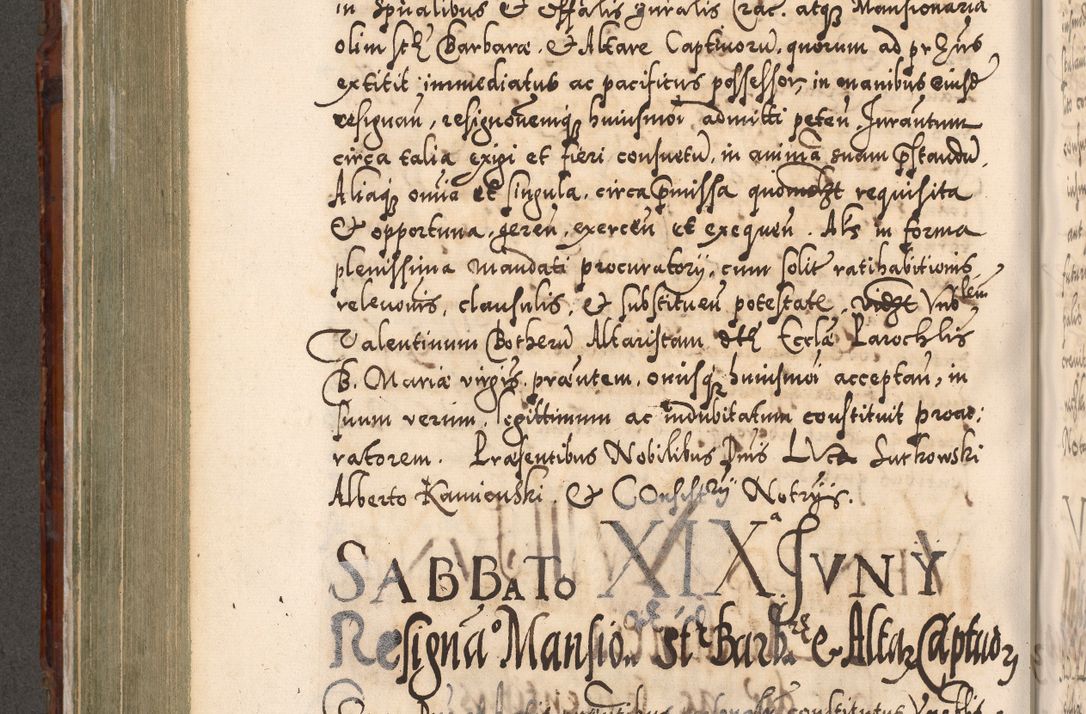 in Spũalibus & Effalis gnralis Crac. atq3 Mansionaria
olim sctę Barbaræ. & Altare Captivorũ, quorum ad præns
extitit immediatus ac pacificus possessor, in manibus eiusd
resignan, resignõnemq3 huiusmõi admitti peteñ. Iurantum
circa talia exigi et fieri consuetũ, in animã suam p̃standũ.
Aliaq3 omĩa et singula, circa p̃missa requisita
& opportuna, gereñ, exerceñ et exequeñ. Als in forma
plenissima mandati procuratorij, cum solit ratihabitionis
relevõnis, clausulis, & substitueñ potestate, Vnblem
Valentinum Botherũ Altaristam dctę Ecclæ Parochlis
B. Mariæ virgis præntem, onusq3 huiusmõi acceptañ, in
suum verum, legittimum ac indubitatum constituit procu:
ratorem. Præsentibus Nobilibus Dnis Luca Sutkowski
Alberto Kamienski & Consistrij Notrijs.
SABBATO XIXa IVNY
Resignão Mansion Sctę Barbræ & Altar Captivor